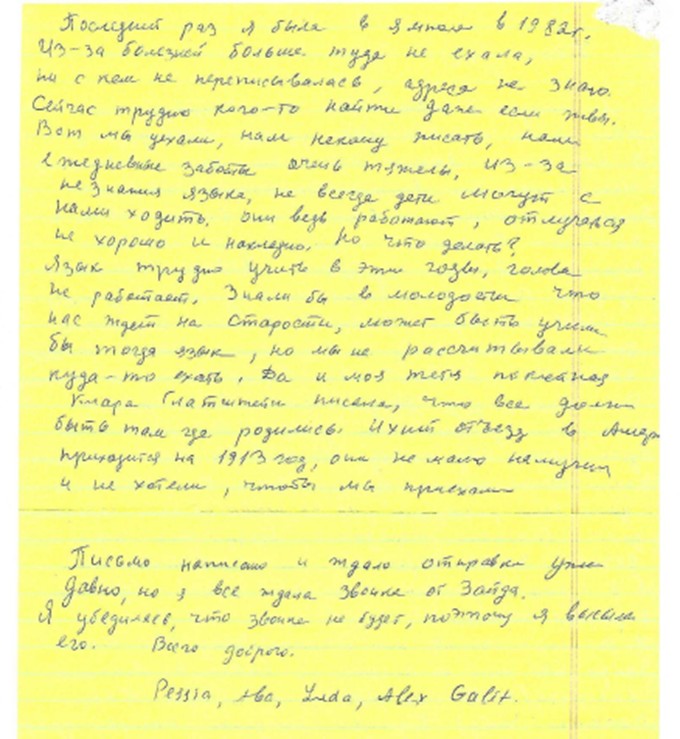 Последний раз я была в Ямполе в 1982г.
Из-за болезней больше туда не ехала,
ни с кем не переписывалась, адреса не знаю.
Сейчас трудно кого-то найти даже если живы.
Вот мы уехали, нам некому писать, наши
ежедневные заботы очень тяжелы, из-за
незнания языка, не всегда дети могут с
нами ходить. они ведь работают, отлучаться
не хорошо и накладно. Но что делать?
Язык трудно учить в эти годы, голова
не работает. Знали бы в молодости что
нас ждет на старости, может быть учили
бы тогда язык, но мы не рассчитывали
куда-то ехать. Да и моя тетя покойная
Клара Глатштейн писала, что все должны
быть там где родились. Ихний отъезд в Амер
приходится на 1913 год, они не мало намучил
и не хотели, чтобы мы приехали
Письмо написано и ждало отправки уже
давно, но я все ждала звонка от Зайда.
Я убедилась, что звонка не будет, поэтому я высылаю
его. Всего доброго.
Pessia, Aba, Alex Galit.